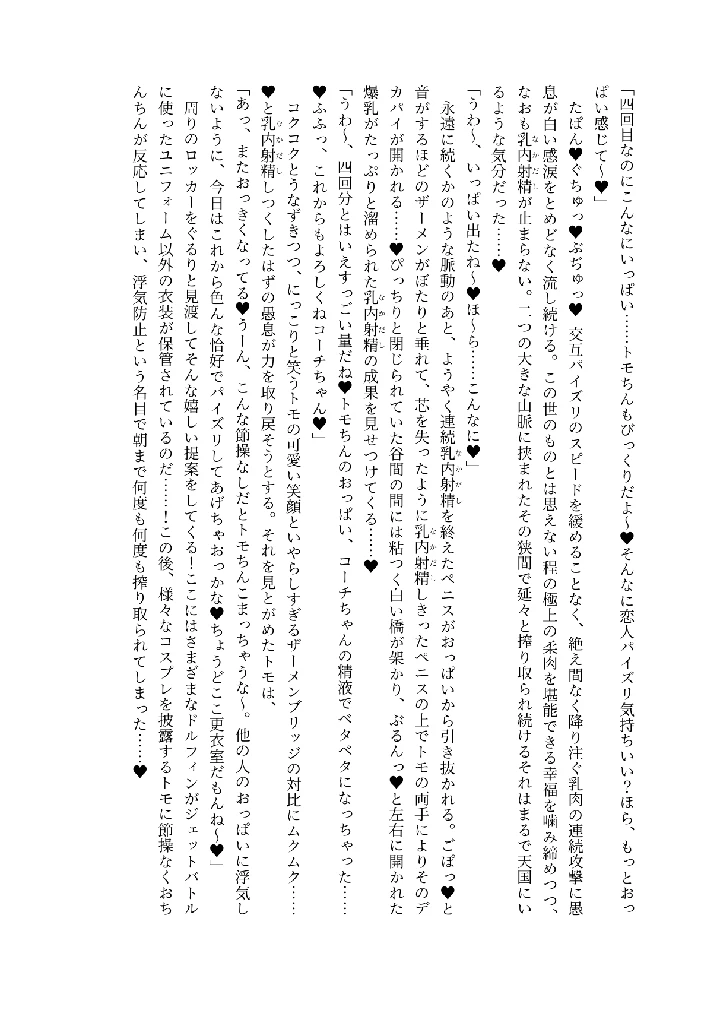 「四回目なのにこんなにいっぱい……トモちんもびっくりだよ～♥そんなに恋人パイズリ気持ちいい？ほら、もっとおっ
ぱい感じて～♥」
　たぱん♥ぐちゅっ♥ぷぢゅっ♥　交互パイズリのスピードを緩めることなく、絶え間なく降り注ぐ乳肉の連続攻撃に愚
息が白い感涙をとめどなく流し続ける。この世のものとは思えない程の極上の柔肉を堪能できる幸福を噛み締めつつ、
なおも乳内射精が止まらない。二つの大きな山脈に挟まれたその狭間で延々と搾り取られ続けるそれはまるで天国にい
るような気分だった……♥
「うわ～、いっぱい出たね～♥ほ～ら……こんなに♥」
　永遠に続くかのような脈動のあと、ようやく連続乳内射精を終えたペニスがおっぱいから引き抜かれる。ごぽっ♥と
音がするほどのザーメンがぼたりと垂れて、芯を失ったように乳内射精しきったペニスの上でトモの両手によりそのデ
カパイが開かれる……♥ぴっちりと閉じられていた谷間の間には粘つく白い橋が架かり、ぶるんっ♥と左右に開かれた
爆乳がたっぷりと溜められた乳内射精の成果を見せつけてくる……♥
「うわ～、四回分とはいえすっごい量だね♥トモちんのおっぱい、コーチちゃんの精液でベタベタになっちゃった……
♥ふふっ、これからもよろしくねコーチちゃん♥」
　コクコクとうなずきつつ、にっこりと笑うトモの可愛い笑顔といやらしすぎるザーメンブリッジの対比にムクムク……
♥と乳内射精しつくしたはずの愚息が力を取り戻そうとする。それを見とがめたトモは、
「あっ、またおっきくなってる♥うーん、こんな節操なしだとトモちんこまっちゃうな～。他の人のおっぱいに浮気し
ないように、今日はこれから色んな恰好でパイズリしてあげちゃおっかな♥ちょうどここ更衣室だもんね～♥」
　周りのロッカーをぐるりと見渡してそんな嬉しい提案をしてくる！ここにはさまざまなドルフィンがジェットバトル
に使ったユニフォーム以外の衣装が保管されているのだ……！この後、様々なコスプレを披露するトモに節操なくおち
んちんが反応してしまい、浮気防止という名目で朝まで何度も何度も搾り取られてしまった……♥